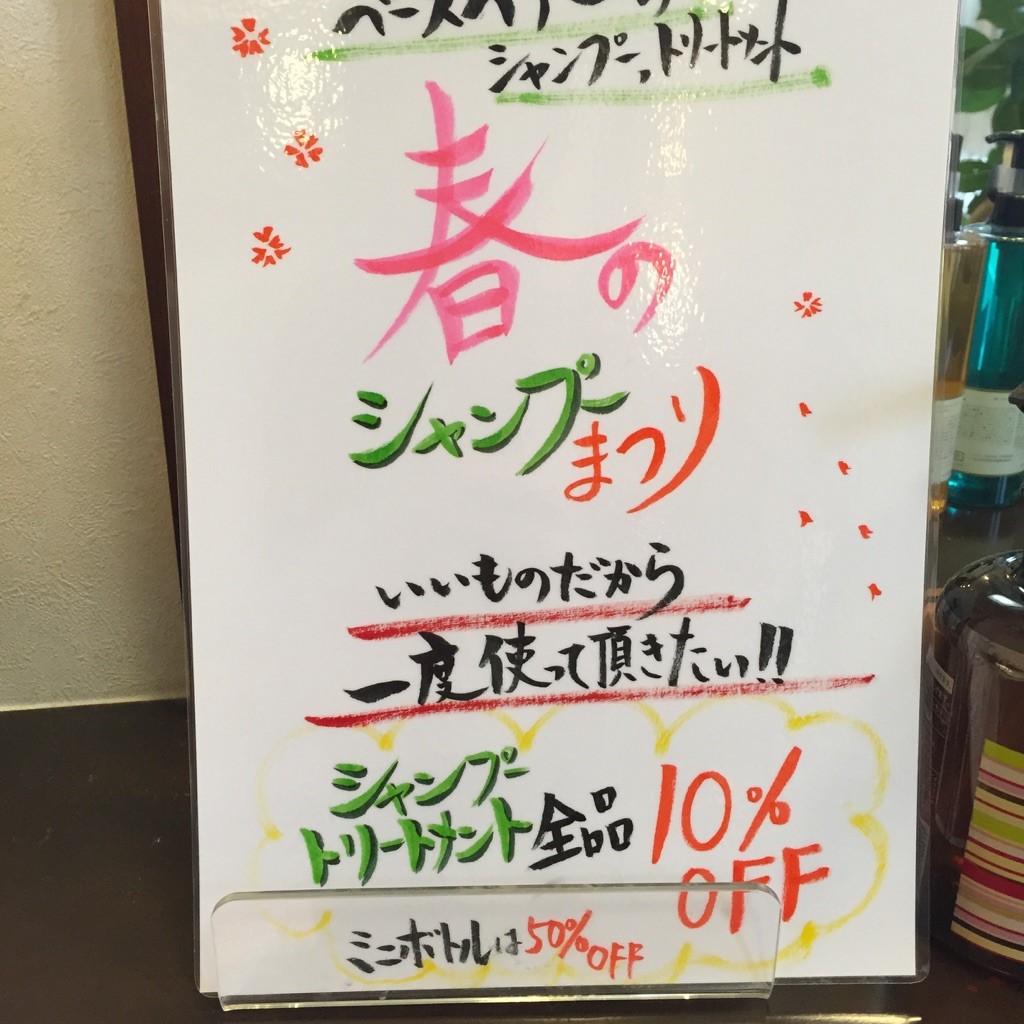 シャンプー,トリートメント
春の
シャンプー
まつり
いいものだから
一度使って頂きたい!!
シャンプー
トリートメント全品
10%
OFF
ミニボトルは50%OFF